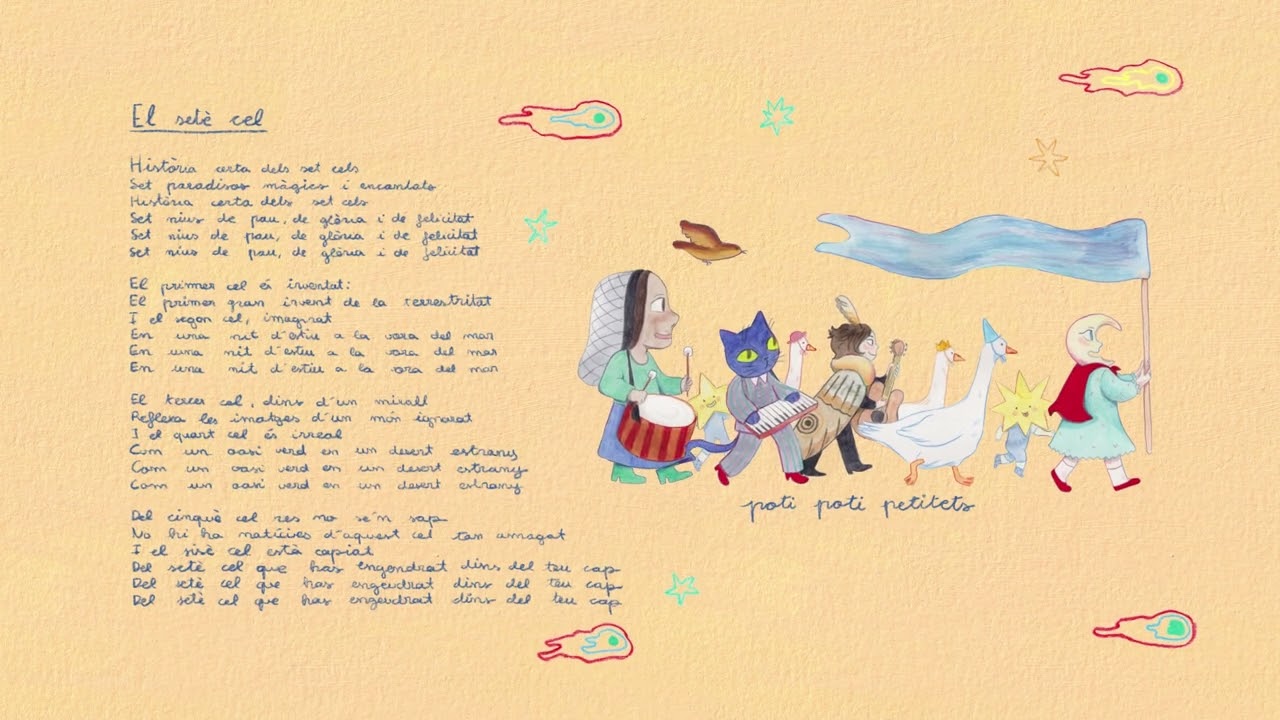 El setè cel
Història certa dels set cels
Set paradisos màgics i encantats
Història certa dels set cels
Set nius de pau, de glòria i de felicitat
Set nius de pau, de glòria i de felicitat
Set nius de pau, de glòria i de felicitat
El primer cel és inventat:
El primer gran invent de la terrestritat
I el segon cel, imaginat
En una nit d'estiu a la vora del mar
En una nit d'estiu a la vora del mar
En una nit d'estiu a la vora del mar
El tercer cel, dins d'un mirall
Reflexa les imatges d'un món ignorat
I el quart cel és irreal
Com un oasi verd en un desert estrany
Com un oasi verd en un desert estrany
Com un oasi verd en un desert estrany
Del cinquè cel res no se'n sap
No hi ha notícies d'aquest cel tan amagat
I el sisè cel està copiat
Del setè cel que has engendrat dins del teu cap
Del setè cel que has engendrat dins del teu cap
Del setè cel que has engendrat dins del teu cap
poti poti petitets